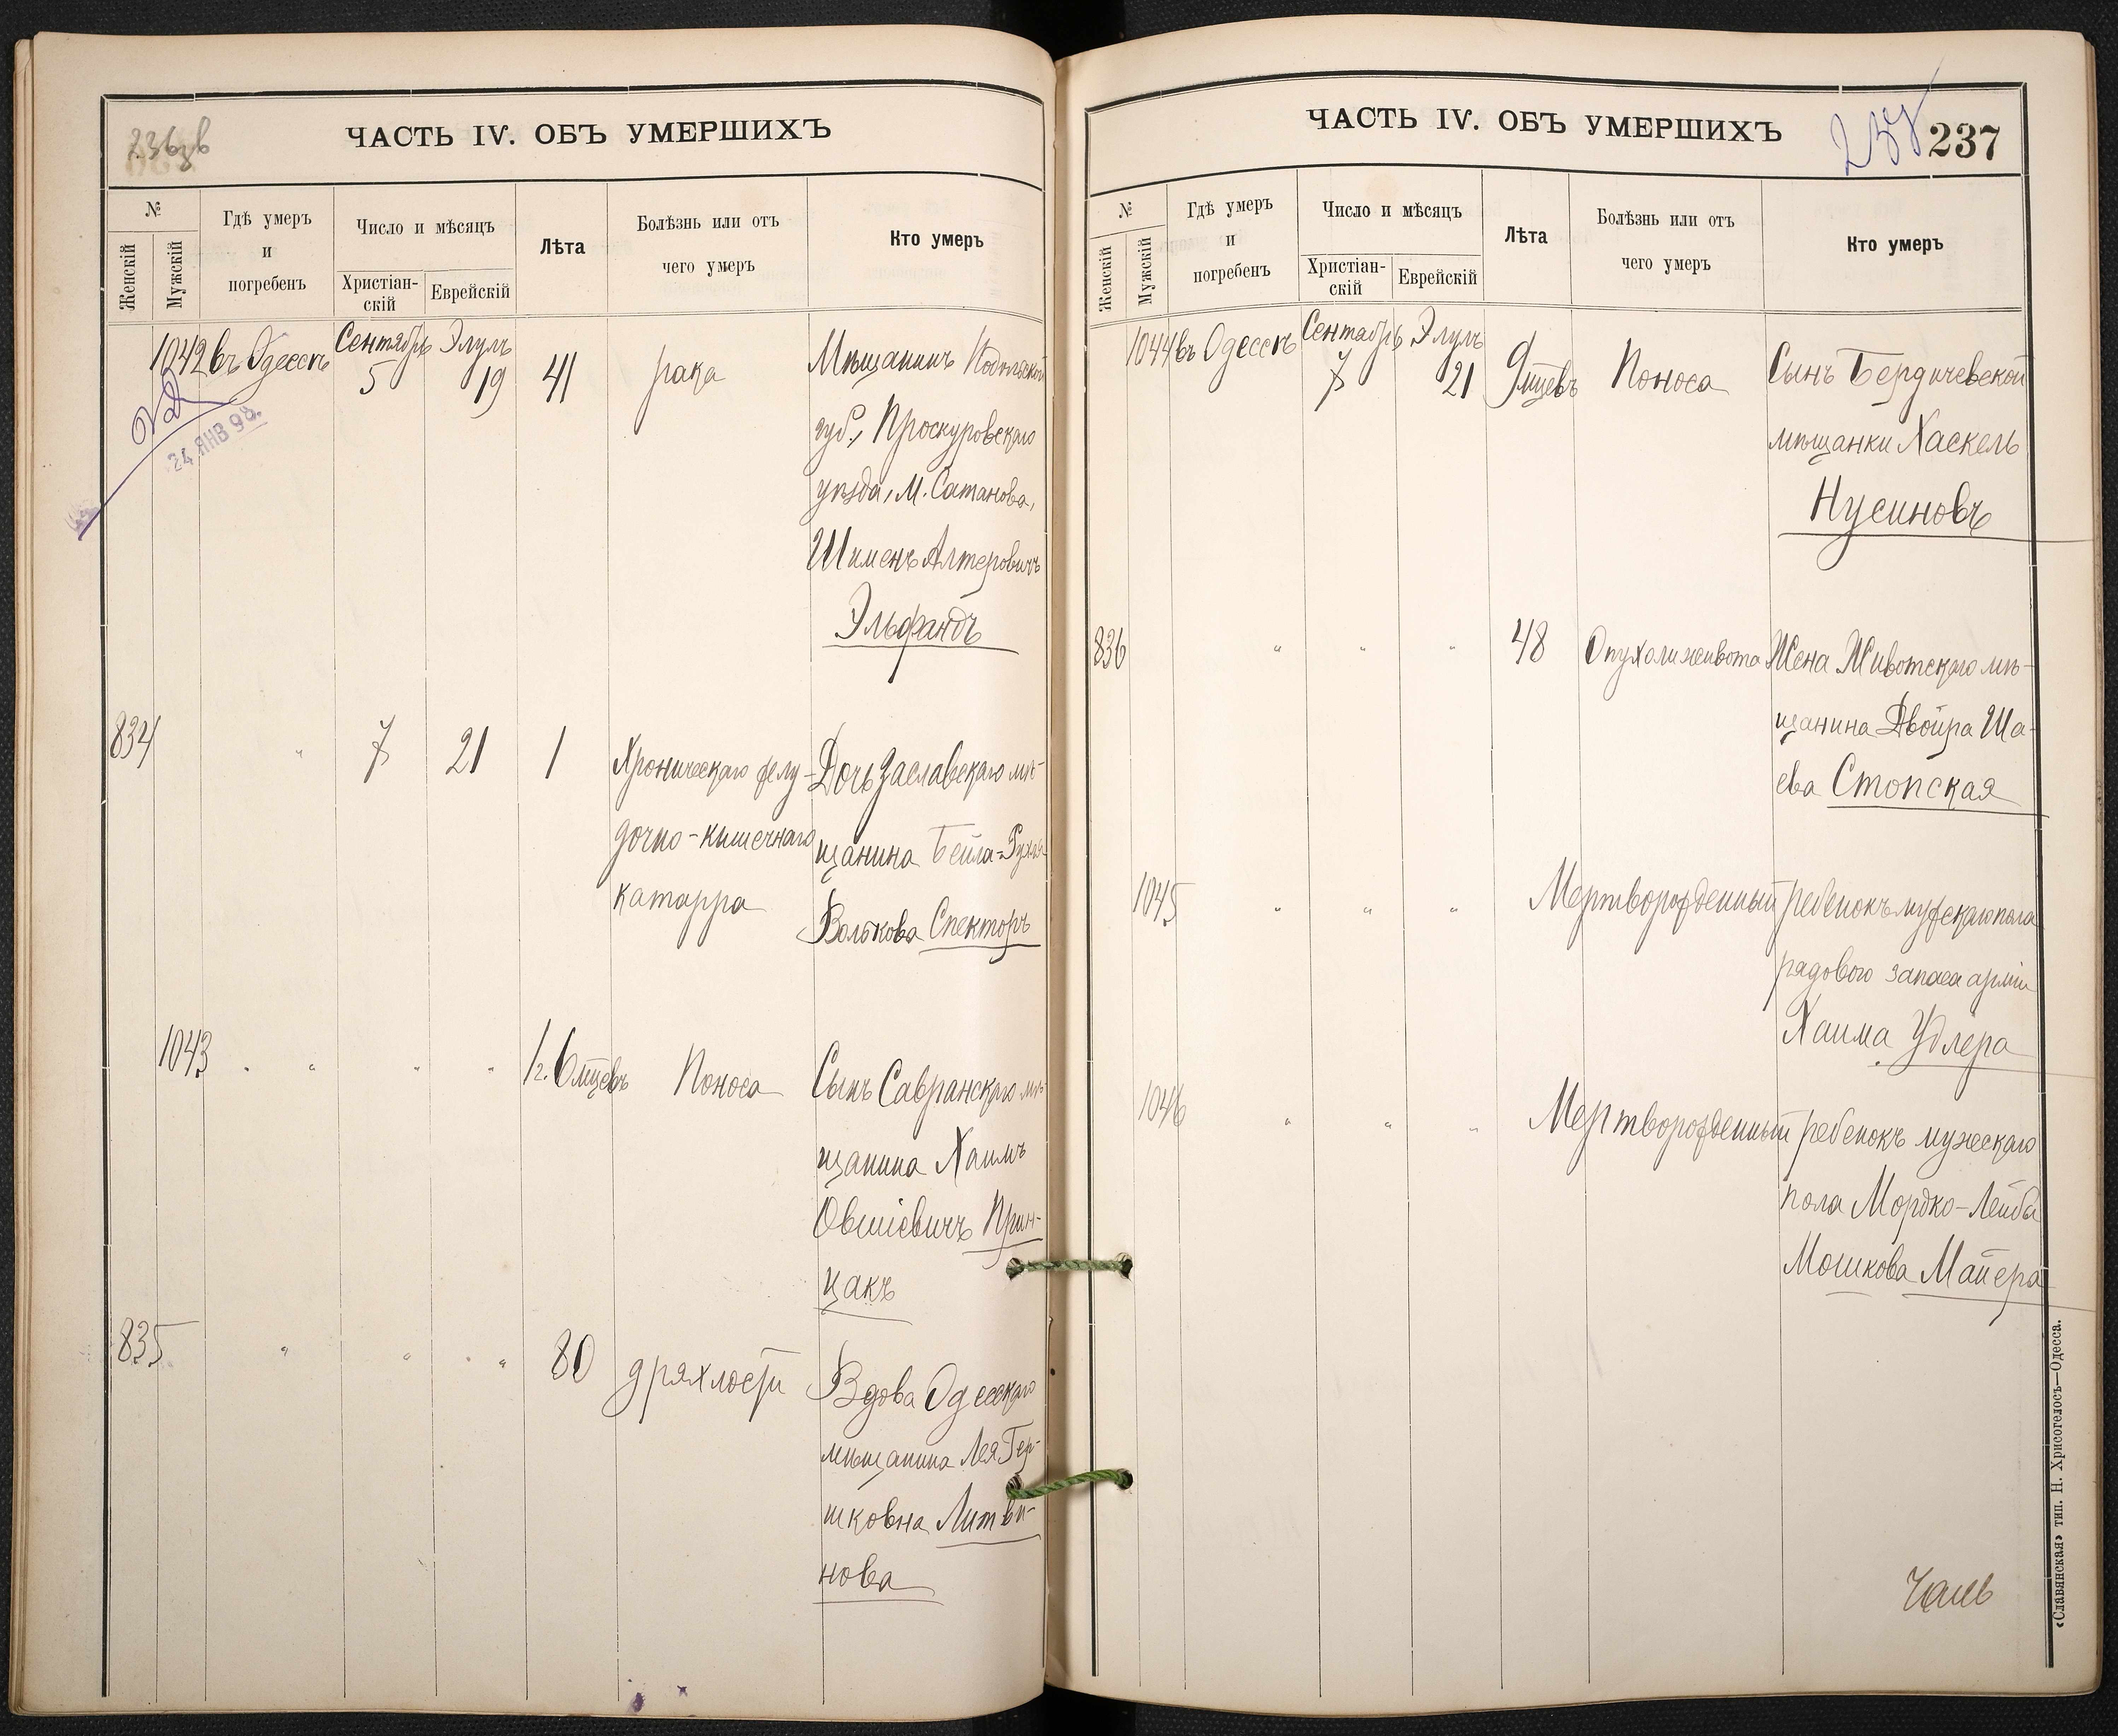 236
ЧАСТЬ IV. ОБЪ УМЕРШИХЪ
№
Женскій
Мужскій
Гдѣ умеръ
и
погребенъ
Число и мѣсяцъ
Христіан-
скій
Еврейскій
Лѣта
Болѣзнь или отъ
чего умеръ
Кто умеръ
1042 въ Одессѣ Сентябрь 5 Элулъ 19 41 рака Мѣщанинъ Подольской
губ., Проскуровскаго
уѣзда, М. Сатанова,
Шименъ Алтеровичъ
Эльфандъ
24 ЯНВ 98.
834 " 7 21 1 Хроническаго желу- Дочь Заславскаго мѣ-
дочно-кишечнаго щанина Бейла-Рухля
катарра Волькова Спекторъ
1043 " " " " 1г. 6 мцевъ Поноса Сынъ Савранскаго мѣ-
щанина Хаимъ
Овшіевичъ Прин-
цакъ
835 " " " " 80 дряхлости Вдова Одесскаго
мѣщанина Лея Гер-
шковна Литви-
нова
ЧАСТЬ IV. ОБЪ УМЕРШИХЪ
237
№
Женскій
Мужскій
Гдѣ умеръ
и
погребенъ
Число и мѣсяцъ
Христіан-
скій
Еврейскій
Лѣта
Болѣзнь или отъ
чего умеръ
Кто умеръ
1044 въ Одессѣ Сентябрь 7 Элулъ 21 9 мцевъ Поноса Сынъ Бердичевской
мѣщанки Хаскель
Нусиновъ
836 " " " 48 Опухоли живота Жена Животскаго мѣ-
щанина Двойра Ша-
ева Стопская
1045 " " " Мертворожденный ребенокъ мужскаго пола
рядового запаса арміи
Хаима Удлера
1046 " " " Мертворожденный ребенокъ мужескаго
пола Мордко-Лейба
Мошкова Майера
«Славянская» тип. Н. Хрисогелосъ—Одесса.